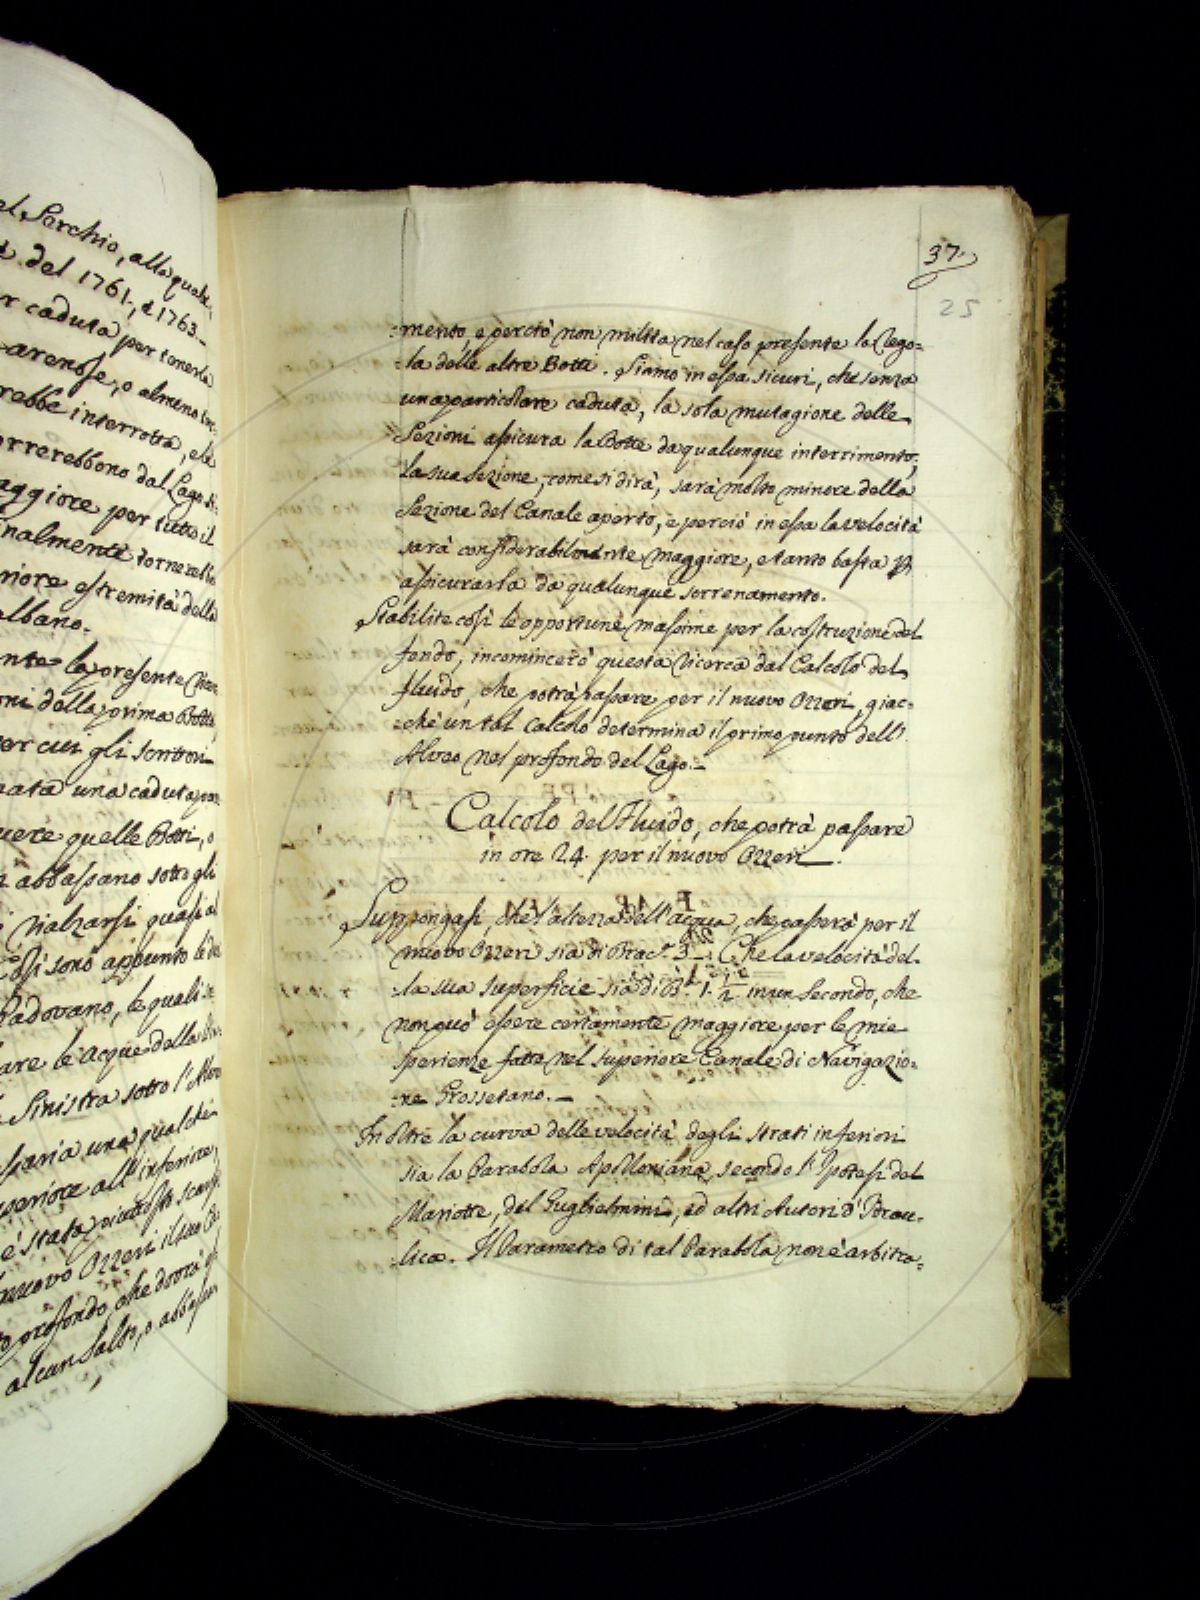 el Serchio, alla quale
del 1761., e 1763.
r caduta per tenerla
arenose, o almeno
rebbe interrotta, e la
orrerebbono dal Lago
aggiore per tutto il
nalmente tornerebbe
riore estremità della
albano.
nte la presente
oni della prima Botte,
per cui gli scrittori
nata una caduta
uere quelle Botti, o
abbassano sotto gli
rialzarsi quasi al
così sono appunto le
Padovano, le quali
are le acque della
Sinistra sotto l'Alveo
saria una qualche
periore all'inferiore,
è stata piuttosto
nuovo Ozzeri il suo
profondo, che dovrà
alcun salto, o
37.
25
:mento, e perciò non milita nel caso presente la Rego=
:la delle altre Botti. Siamo in essa sicuri, che senza
una particolare caduta, la sola mutagione delle
Sezioni assicura la Botte da qualunque interrimento;
la sua sezione, come si dirà, sarà molto minore della
Sezione del Canale aperto, e perciò in essa la velocità
sarà considerabilmente maggiore, e tanto basta p
assicurarla da qualunque serrenamento.
Stabilite così le opportune massime per la costruzione del
fondo, incomincerò questa ricerca dal Calcolo del
fluido, che potrà passare per il nuovo Ozzeri, giac=
:chè un tal Calcolo determina il primo punto dell'
Alveo nel profondo del Lago.
Calcolo del Fluido, che potrà passare
in ore 24. per il nuovo Ozzeri.
Suppongasi, che l'altezza dell'acqua, che passerà per il
nuovo Ozzeri sia di Brac. 3. Che la velocità del
:la sua superficie sia di B. 1. 1/2 in un Secondo, che
non può essere certamente maggiore per le mie
sperienze fatte nel superiore Canale di Navigazio=
:ne Grossetano.
In oltre la curva delle velocità degli strati inferiori
sia la Parabola Apolloniana, secondo l'Ipotesi del
Mariotte, del Guglielmini, ed altri Autori d'Idrau=
:lica. Il Parametro di tal Parabola non è arbitra=